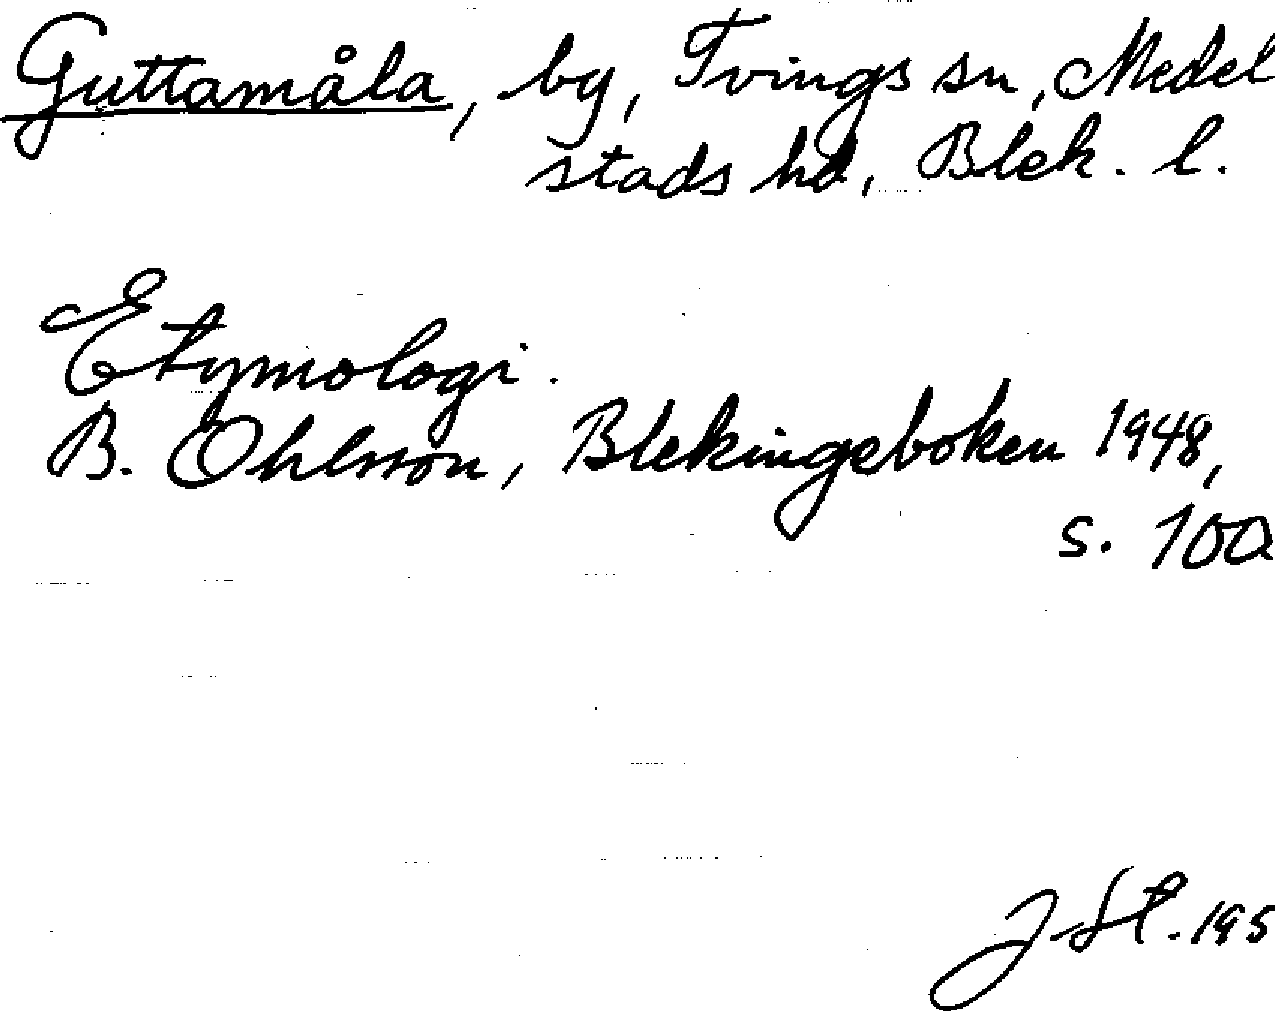 Guttamåla, by, Tvings sn, Medel
stads hd, Blek. l.
Etymologi.
B. Ohlsson, Blekingeboken 1948,
s. 100
J St. 195